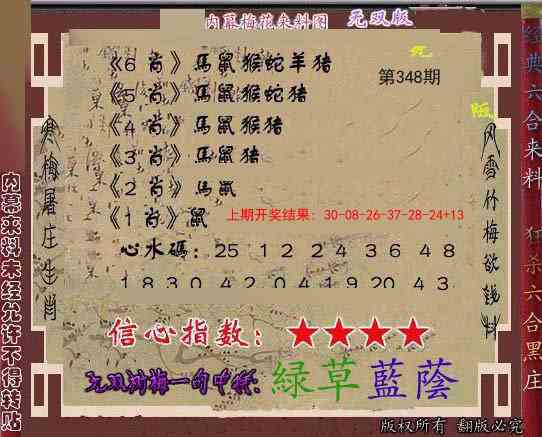 内幕梅花来料图 无双版
《6 肖》馬鼠猴蛇羊猪
第348期
《5 肖》馬鼠猴蛇猪
《4 肖》馬鼠猴猪
《3 肖》馬鼠猪
《2 肖》馬鼠
《1 肖》鼠
上期开奖结果：30-08-26-37-28-24+13
心水碼：25 12 24 36 48
18 30 42 04 19 20 43
信心指数：★★★★
綠草藍蔭
版权所有 翻版必究
寒梅屠庄生肖
内幕来料未经允许不得转贴
风雪竹梅欲钱料
经典六合来料
狂杀六合黑庄